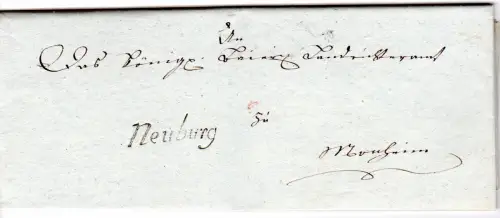 An
Das Königl. Baier. Landrichteramt
Neuburg
zu
Monheim